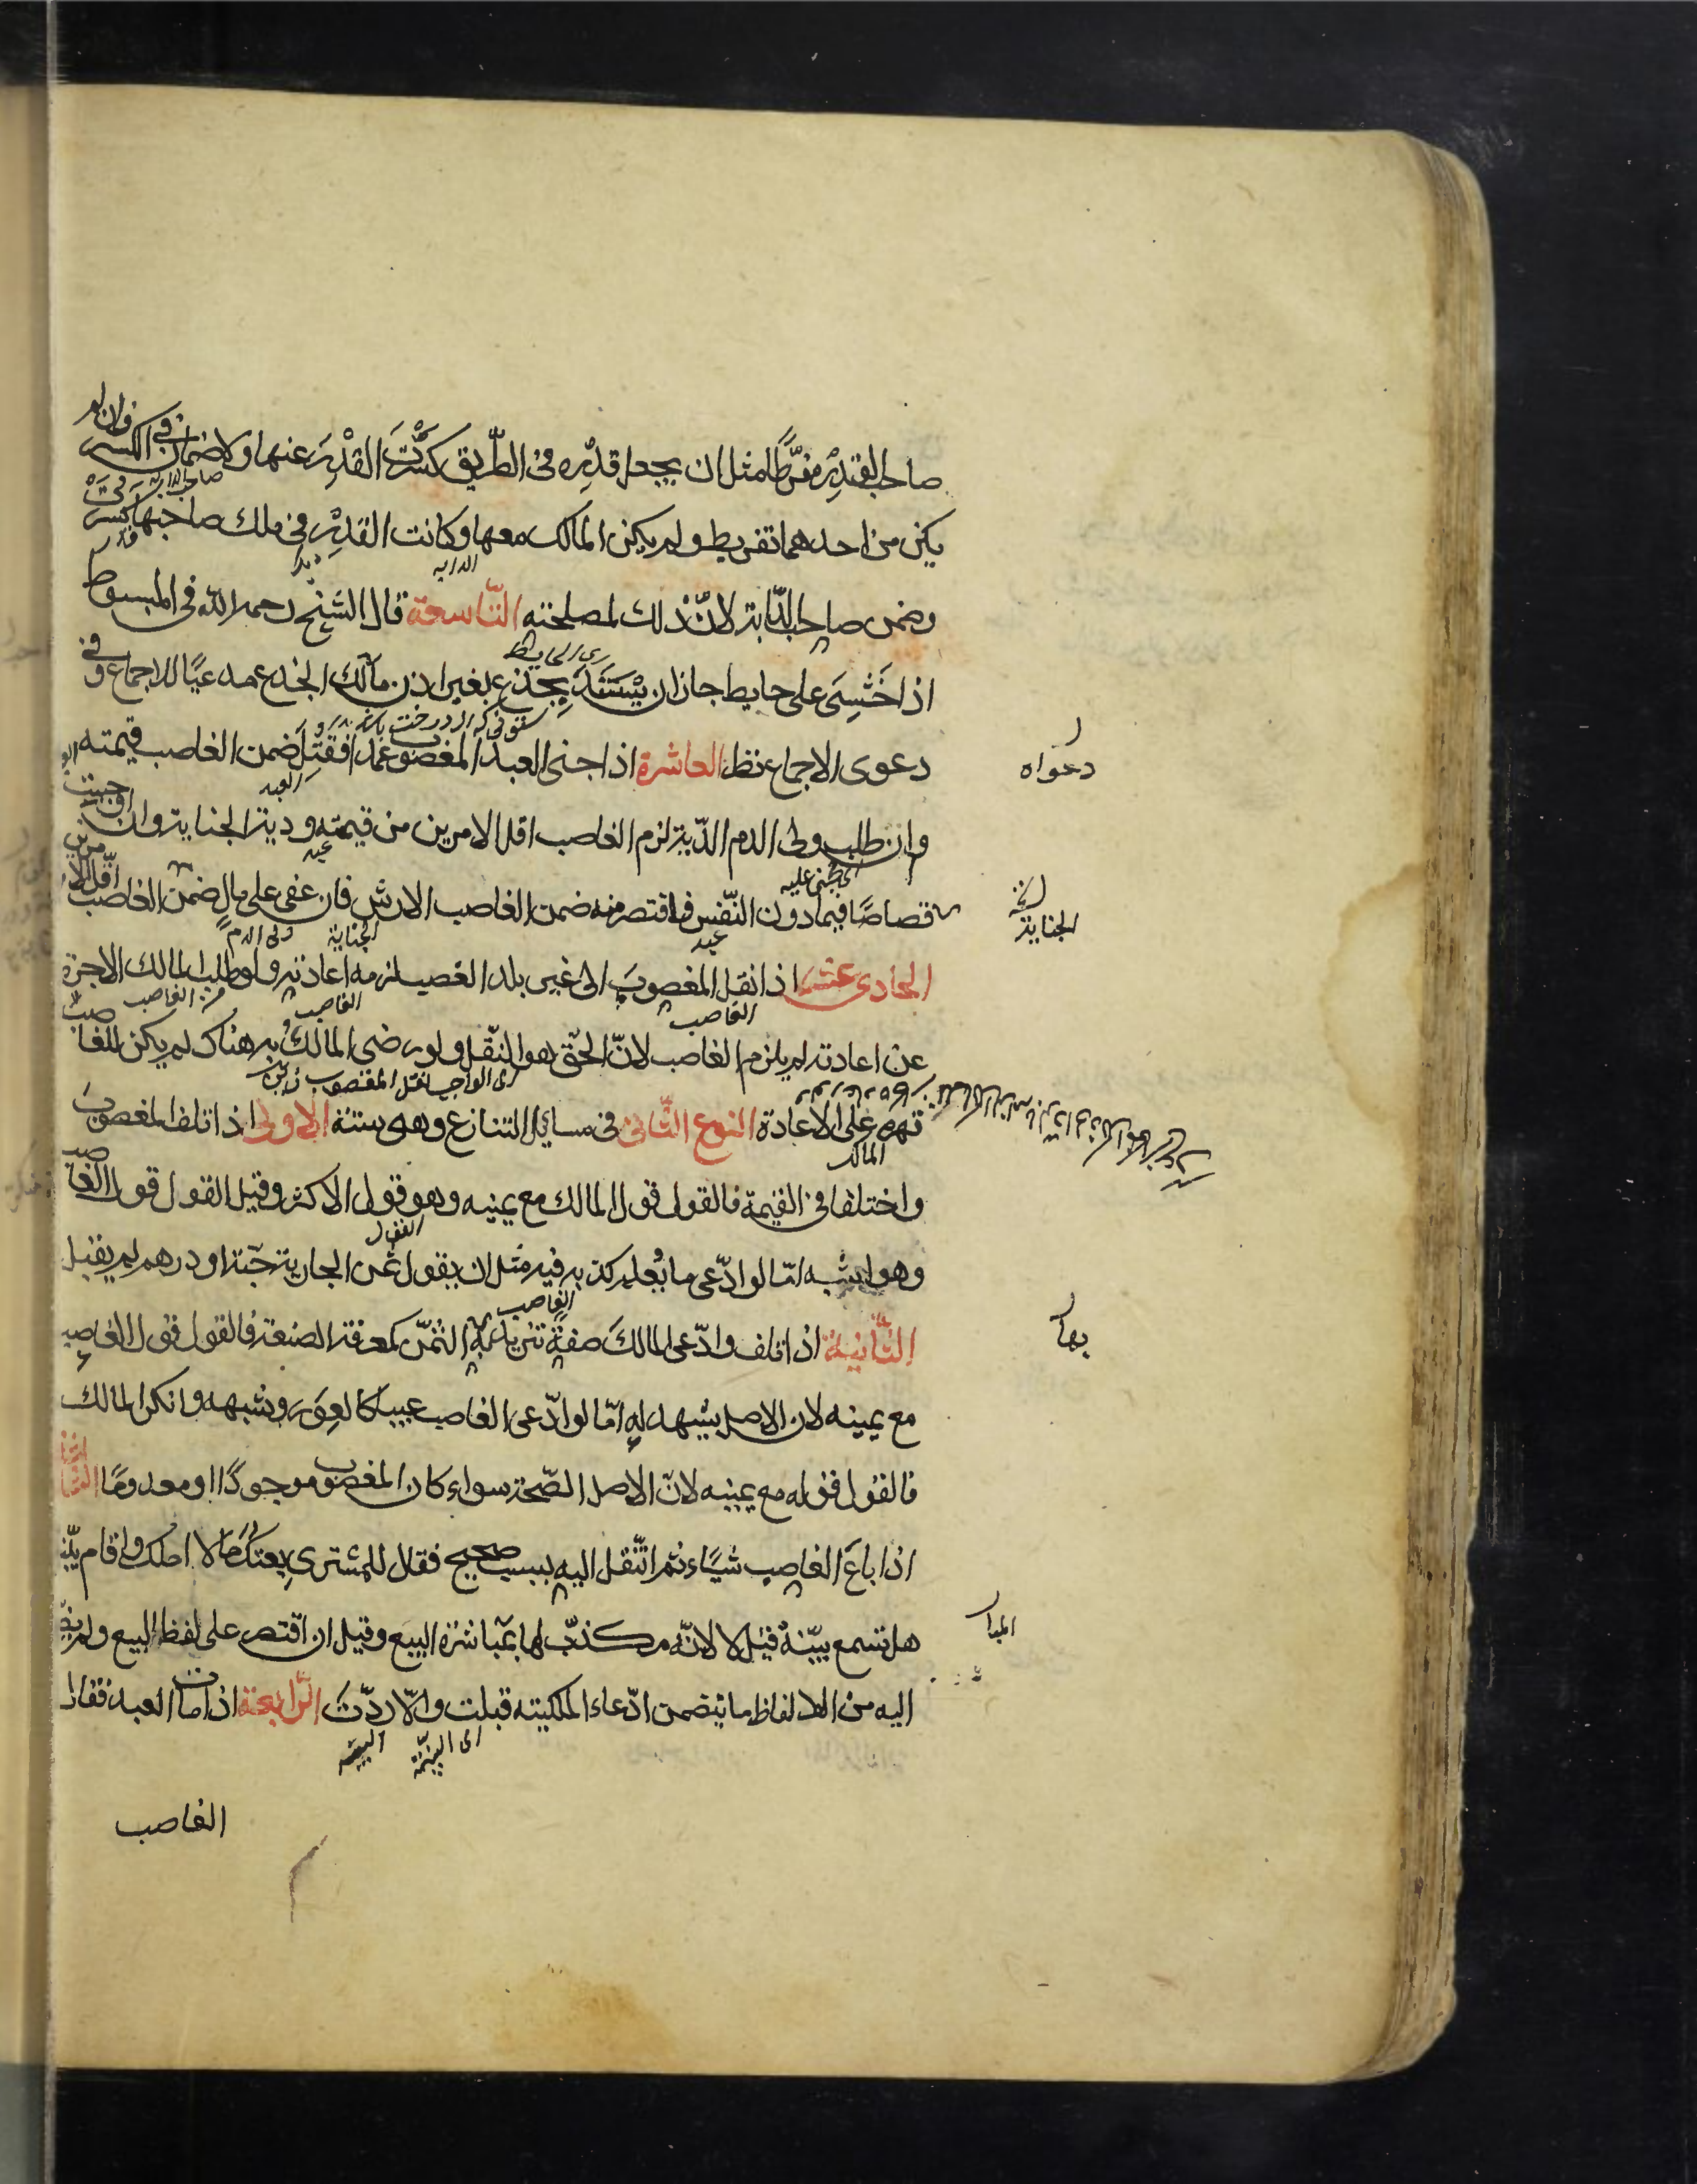 صاحب القدر مفرّطًا مثل ان يجعل قدره فى الطّريق كسّرت القدر عنها ولا ضمان فى الكسر وان لم
يكن من احدهما تفريط ولم يكن المالك معها وكانت القدر فى ملك صاحبها كسرت
وضمن صاحب الدّابة لانّ ذلك لمصلحته التّاسعة قال الشيخ رحمه الله فى المبسوط
اذا خشى على حايط جاز ان يستند بجذع بغير اذن مالك الجذع مدعيًا للاجماع وفى
دعوى الاجماع نظر العاشرة اذا جنى العبد المغصوب عمدا فقتل ضمن الغاصب قيمته
وان طلب ولى الدم الدّية لزم الغاصب اقل الامرين من قيمته ودية الجناية وان اوجبت
قصاصًا فيما دون النّفس فاقتص منه ضمن الغاصب الارش فان عفى على مال ضمن الغاصب اقلّ الامرين
الحادى عشر اذا نقل المغصوب الى غير بلد الغصب لزمه اعادته ولو طلب المالك الاجرة
عن اعادته لم يلزم الغاصب لانّ الحقّ هو النّقل ولو رضى المالك به هناك لم يكن للغاصب
قهره على الاعادة النوع الثّانى فى مسايل التنازع وهى ستة الاولى اذا تلف المغصوب
واختلفا فى القيمة فالقول قول المالك مع يمينه وهو قول الاكثر وقيل القول قول الغاصب
وهو اشبه امّا لو ادّعى ما يعلم كذبه فيه مثل ان يقول ثمن الجارية حبّة او درهم لم يقبل
الثّانية اذا تلف وادّعى المالك صفة تزيد بها الثّمن كمعرفة الصنعة فالقول قول الغاصب
مع يمينه لان الاصل يشهد له امّا لو ادّعى الغاصب عيبا كالعور وشبهه وانكر المالك
فالقول قوله مع يمينه لانّ الاصل الصّحة سواء كان المغصوب موجودًا او معدومًا الثّالثة
اذا باع الغاصب شيئًا ثم انتقل اليه بسبب صحيح فقال للمشترى بعتك ما لا املك واقام بيّنة
هل تسمع بيّنة قيل لا لانّه مكذّب لها بمباشرة البيع وقيل ان اقتصر على لفظ البيع ولم يضم
اليه من الالفاظ ما يتضمن ادّعاء الملكيته قبلت والّا ردّت الرّابعة اذا مات العبد فقال
اى البيّنة
البينة
الغاصب
دعواه
الجناية
بها